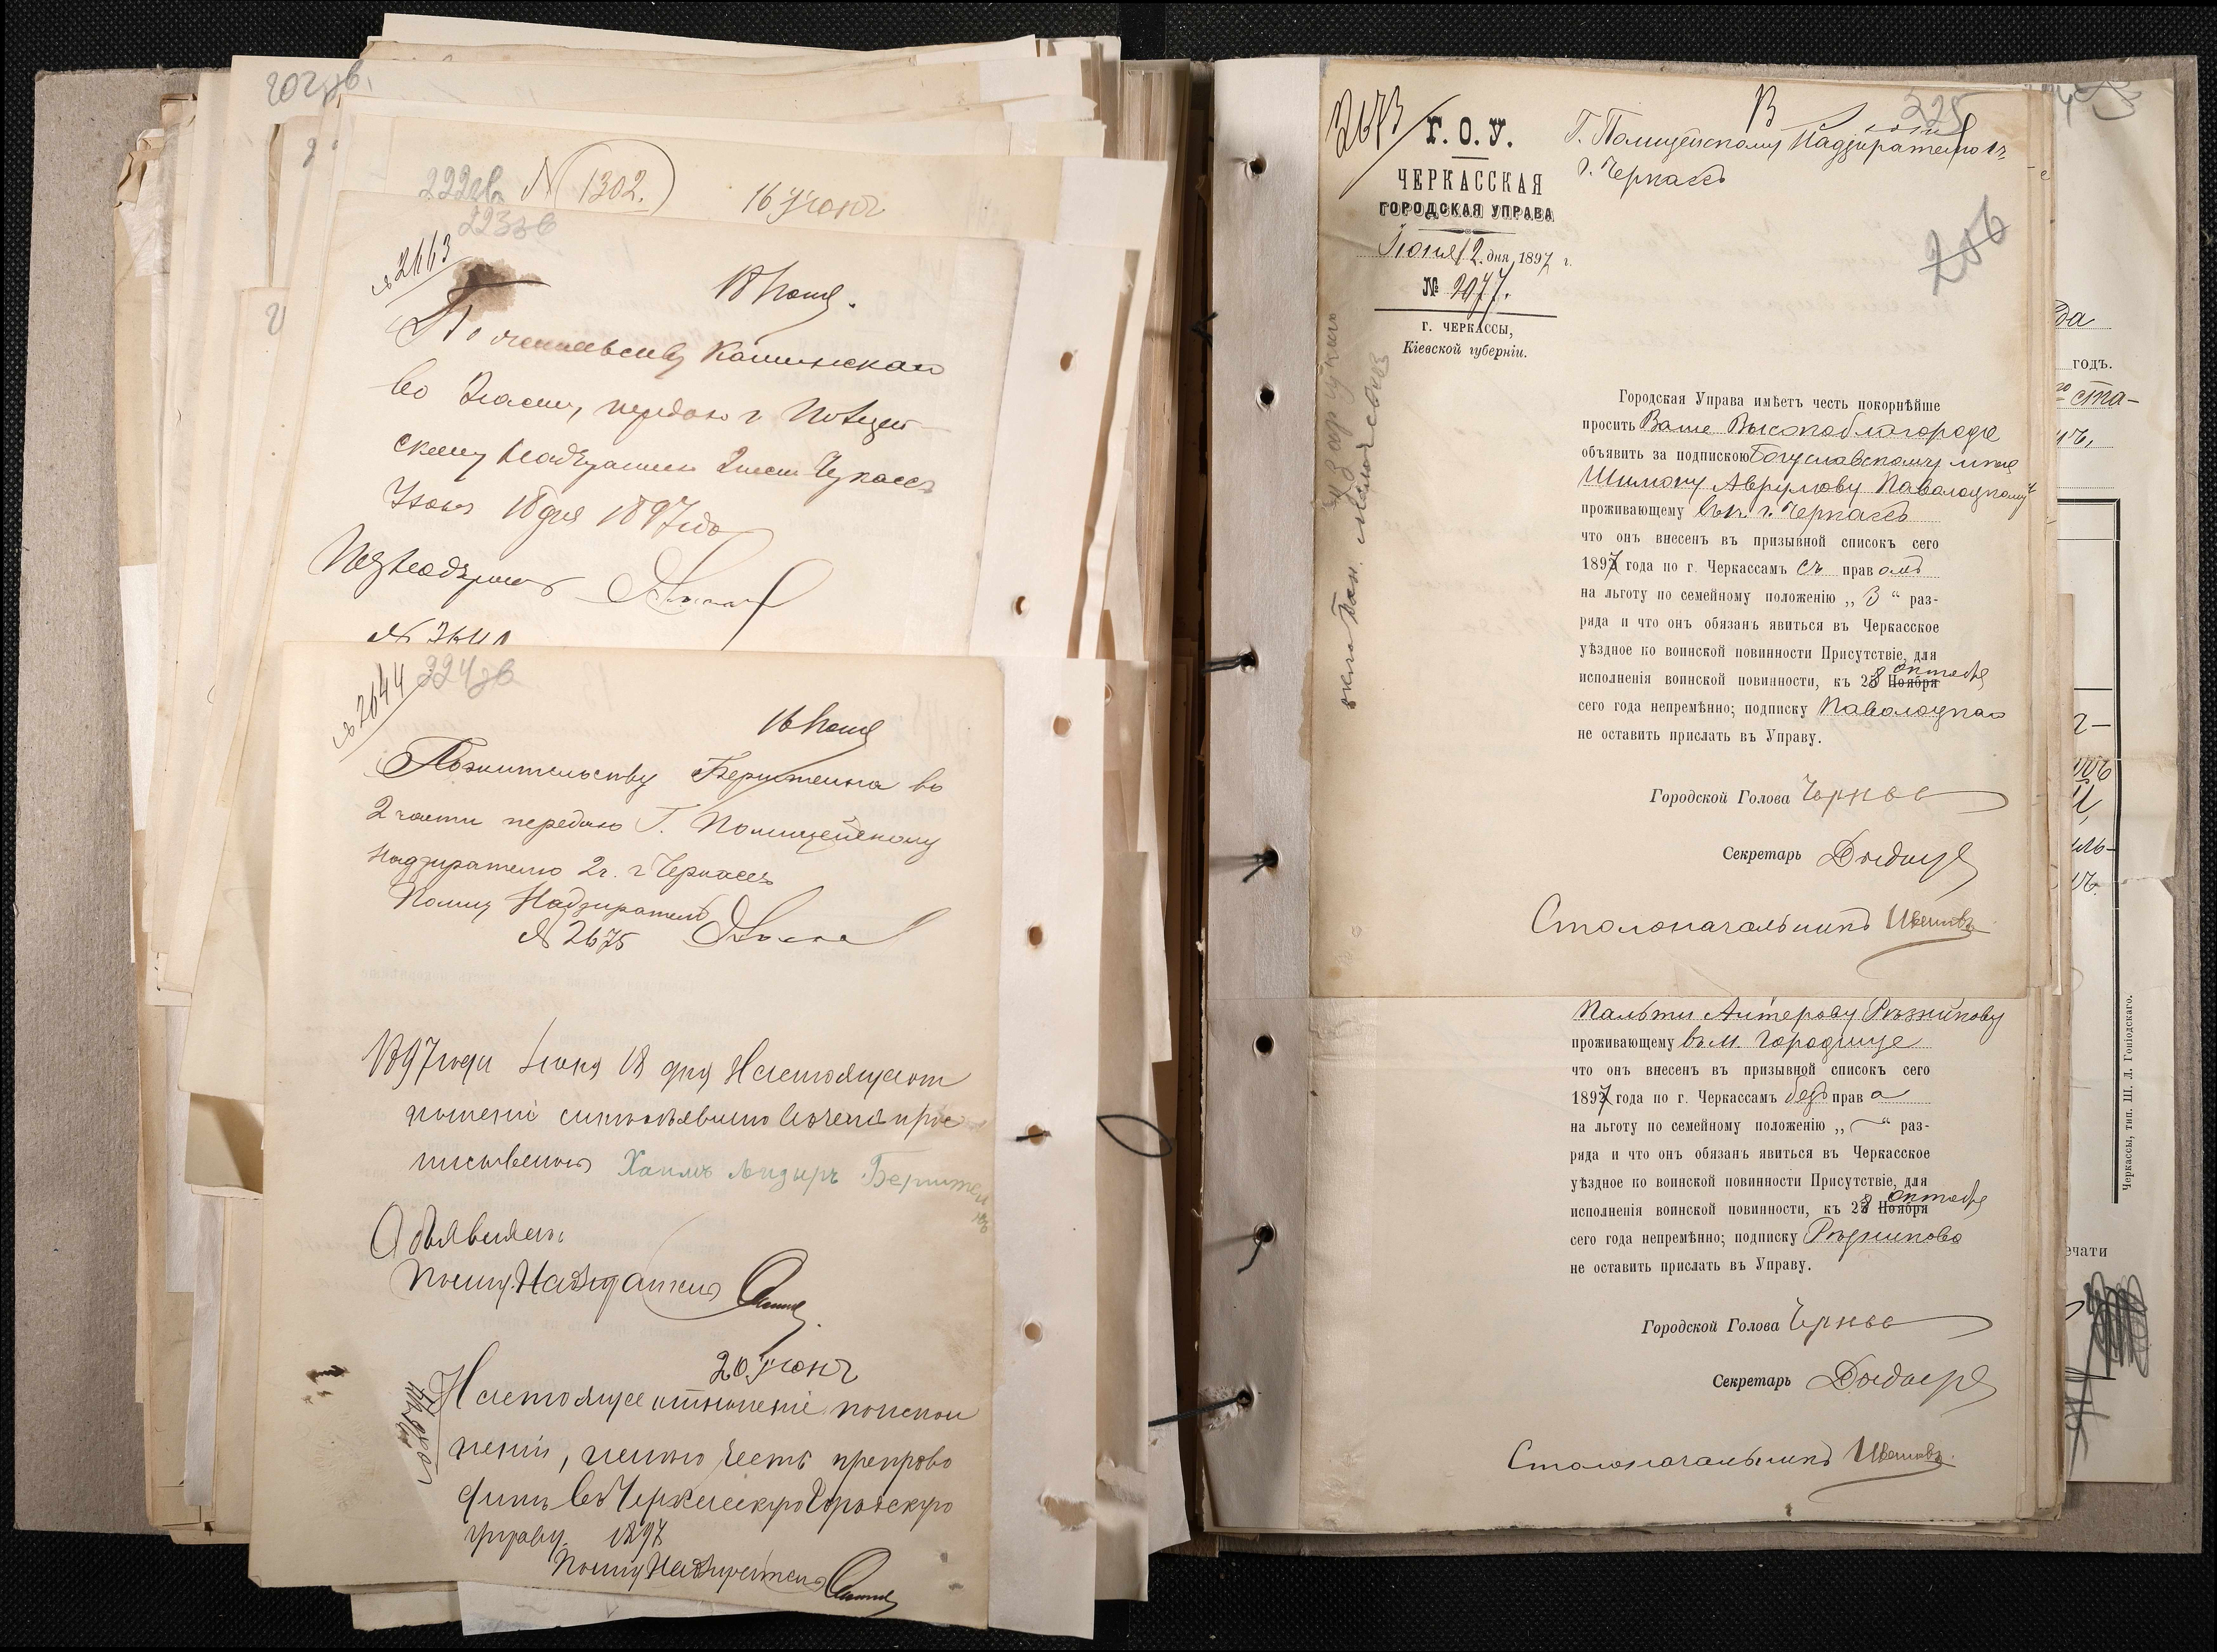 202 зв.
222 зв. № 1302. 16 Июня
223 зв
№ 2663
18 Июня.
По жительству Каминскаго
во 2 части, передаю г. Полицей-
скому Надзирателю 2 части г. Черкасс
Июня 18 дня 1897 года
Пол Надзиратель
№
224 зв
№ 2644
16 Июня
По жительству Бернштейна во
2 части передаю Г. Полицейскому
Надзирателю 2 ч. г. Черкассъ
Полиц Надзиратель
№ 2675
1897 года Июня 18 дня Настоящее от
ношеніе мнѣ объявлено въ чемъ и рос
писываюсь Хаимъ Бернштей
нъ
Объявилъ:
Полиц. Надзиратель
20 Июня
Настоящее отношеніе по испол
неніи, имѣю честь препрово
дить въ Черкасскую Городскую
Управу. 1897
Полиц Надзиратель
2673
Г. О. У.
ЧЕРКАССКАЯ
ГОРОДСКАЯ УПРАВА
Іюня 12 дня 1897 г.
№ 2077.
Г. ЧЕРКАССЫ,
Кіевской губерніи.
В
225
Г. Полицейскому Надзирателю
г. Черкассъ
206
Городская Управа имѣетъ честь покорнѣйше
просить Ваше Высокоблагородіе
объявить за подпискою Богуславскому мѣщ
Шимону Аврумову Паволоцкому
проживающему въ г. Черкассъ
что онъ внесенъ въ призывной списокъ сего
1897 года по г. Черкассамъ съ правомъ
на льготу по семейному положенію „ 3 “ раз-
ряда и что онъ обязанъ явиться въ Черкасское
уѣздное по воинской повинности Присутствіе, для
исполненія воинской повинности, къ 28 Ноября Октября
сего года непремѣнно; подписку Паволоцкаго
не оставить прислать въ Управу.
Городской Голова
Секретарь
Столоначальникъ
Пальти Алтерову Рѣзникову
проживающему въ м. Городище
что онъ внесенъ въ призывной списокъ сего
1897 года по г. Черкассамъ безъ права
на льготу по семейному положенію „ — “ раз-
ряда и что онъ обязанъ явиться въ Черкасское
уѣздное по воинской повинности Присутствіе, для
исполненія воинской повинности, къ 28 Ноября Октября
сего года непремѣнно; подписку Рѣзникова
не оставить прислать въ Управу.
Городской Голова
Секретарь
Столоначальникъ
да
годъ.
го ста-
ечати
Черкассы, тип. Ш. Л. Гоніодскаго.